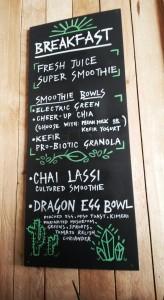 BREAKFAST
FRESH JUICE
SUPER SMOOTHIE
SMOOTHIE BOWLS
• ELECTRIC GREEN
• CHEER-UP CHIA
(CHOOSE WITH PECAN MILK OR
KEFIR YOGURT
• KEFIR
PRO-BIOTIC GRANOLA
• CHAI LASSI
CULTURED SMOOTHIE
• DRAGON EGG BOWL
POACHED EGG, PESO TOAST, KIMCHI
MARINATED MUSHROOM,
GREENS, SPROUTS,
TOMATO RELISH
CORIANDER